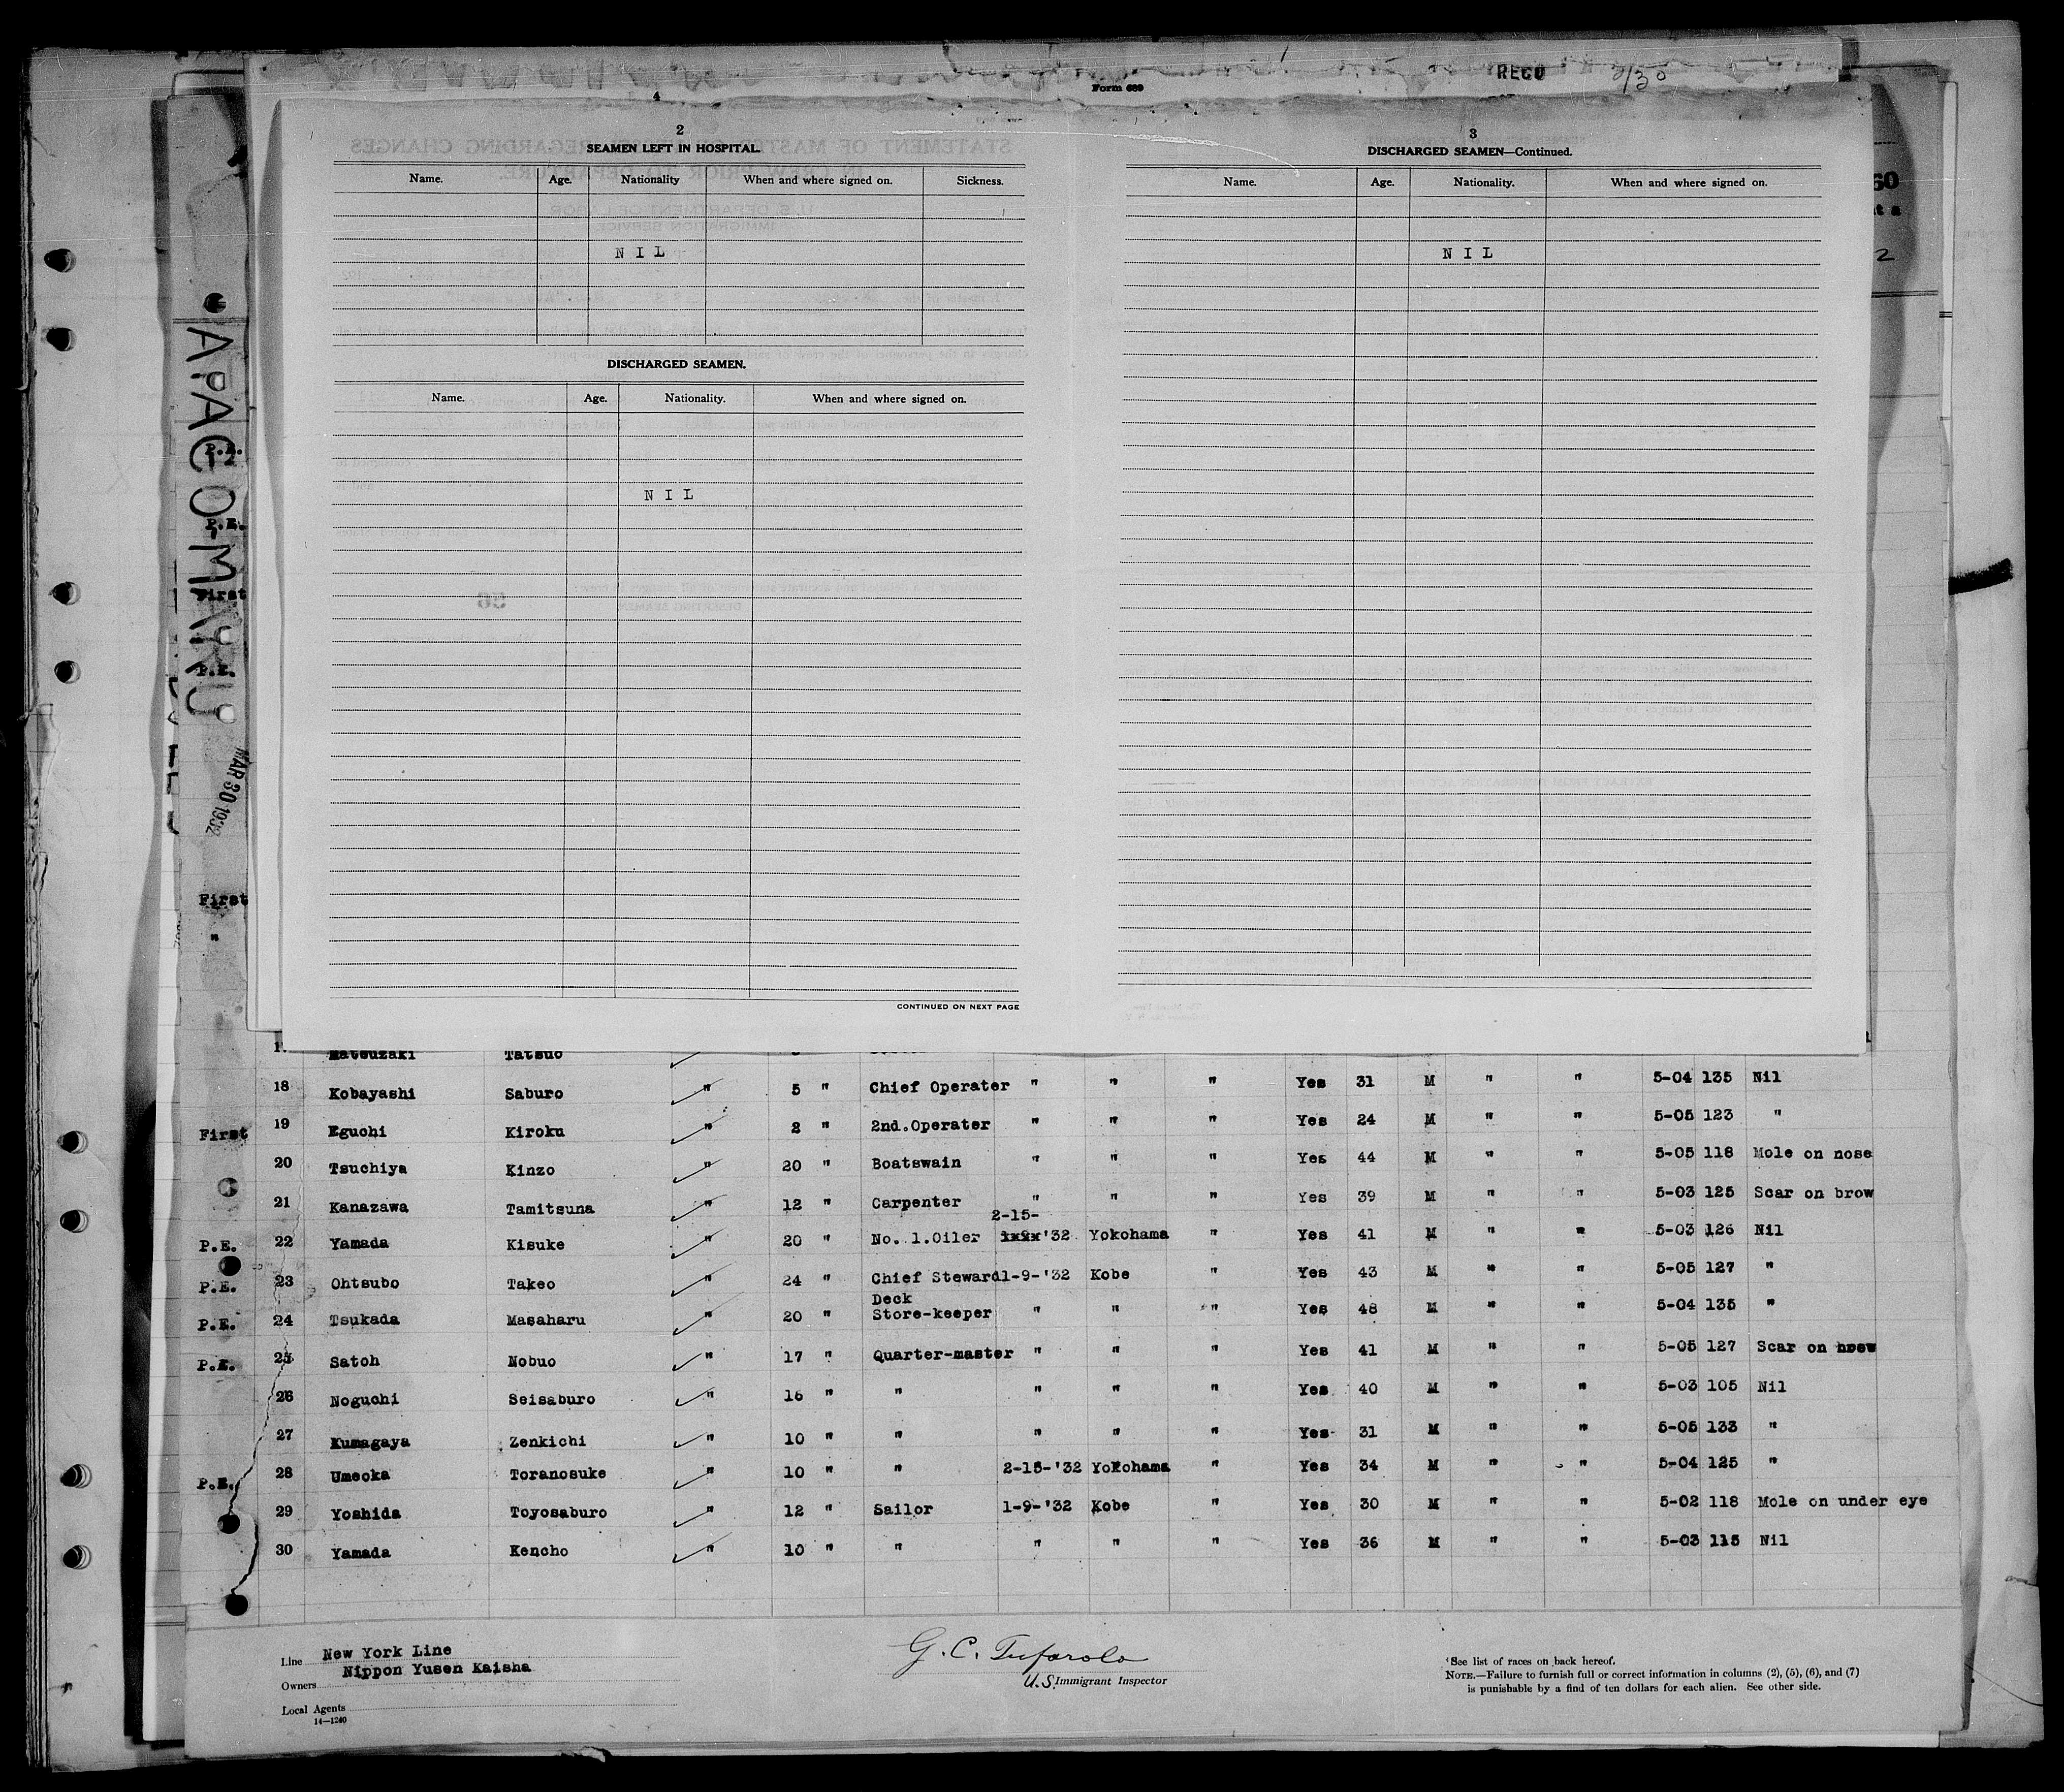 RECD 3/30
Form 689
4
2
SEAMEN LEFT IN HOSPITAL.
Name. Age. Nationality When and where signed on. Sickness.
N I L
DISCHARGED SEAMEN.
Name. Age. Nationality. When and where signed on.
N I L
CONTINUED ON NEXT PAGE
3
DISCHARGED SEAMEN—Continued.
Name. Age. Nationality. When and where signed on.
N I L
60
t a
2
APACO-MARU
MAR 30 1932
P.E.
P.E.
First
P.E.
First
"
Matsuzaki Tatsuo
18 Kobayashi Saburo " 5 " Chief Operater " " " Yes 31 M " " 5-04 135 Nil
First 19 Eguchi Kiroku " 2 " 2nd.Operater " " " Yes 24 M " " 5-05 123 "
20 Tsuchiya Kinzo " 20 " Boatswain " " " Yes 44 M " " 5-05 118 Mole on nose
21 Kanazawa Tamitsuna " 12 " Carpenter " " " Yes 39 M " " 5-03 125 Scar on brow
2-15-
P.E. 22 Yamada Kisuke " 20 " No. 1.Oiler '32 Yokohama " Yes 41 M " " 5-03 126 Nil
P.E. 23 Ohtsubo Takeo " 24 " Chief Steward 1-9-'32 Kobe " Yes 43 M " " 5-05 127 "
Deck
P.E. 24 Tsukada Masaharu " 20 " Store-keeper " " " Yes 48 M " " 5-04 135 "
P.E. 25 Satoh Nobuo " 17 " Quarter-master " " " Yes 41 M " " 5-05 127 Scar on brow
26 Noguchi Seisaburo " 16 " " " " " Yes 40 M " " 5-03 105 Nil
27 Kumagaya Zenkichi " 10 " " " " " Yes 31 M " " 5-05 133 "
P.E. 28 Umeoka Toranosuke " 10 " " 2-15-'32 Yokohama " Yes 34 M " " 5-04 125 "
29 Yoshida Toyosaburo " 12 " Sailor 1-9-'32 Kobe " Yes 30 M " " 5-02 118 Mole on under eye
30 Yamada Kencho " 10 " " " " " Yes 36 M " " 5-03 115 Nil
Line New York Line
Owners Nippon Yusen Kaisha
Local Agents
14—1240
G. C. Tufarolo
U.S. Immigrant Inspector
See list of races on back hereof.
NOTE.—Failure to furnish full or correct information in columns (2), (5), (6), and (7)
is punishable by a find of ten dollars for each alien. See other side.